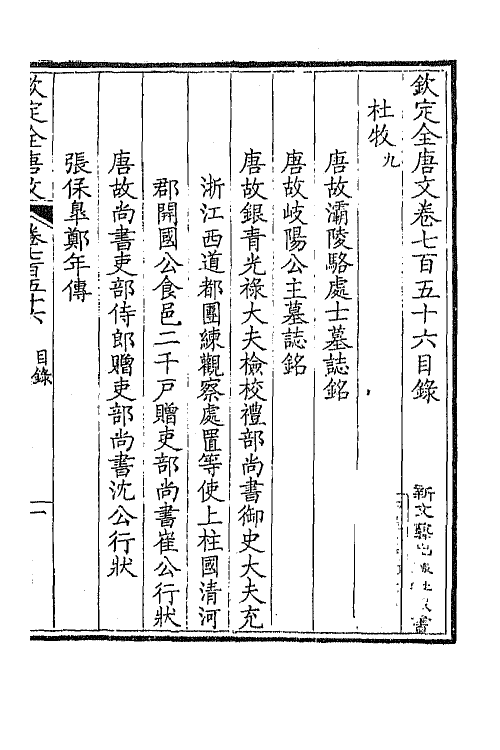 欽定全唐文卷七百五十六目錄
杜牧九
唐故灞陵駱處士墓誌銘
唐故岐陽公主墓誌銘
唐故銀青光祿大夫檢校禮部尚書御史大夫充
浙江西道都團練觀察處置等使上柱國清河
郡開國公食邑二千戶贈吏部尚書崔公行狀
唐故尚書吏部侍郎贈吏部尚書沈公行狀
張保臯鄭年傳
欽定全唐文 卷七百五十六 目錄 一